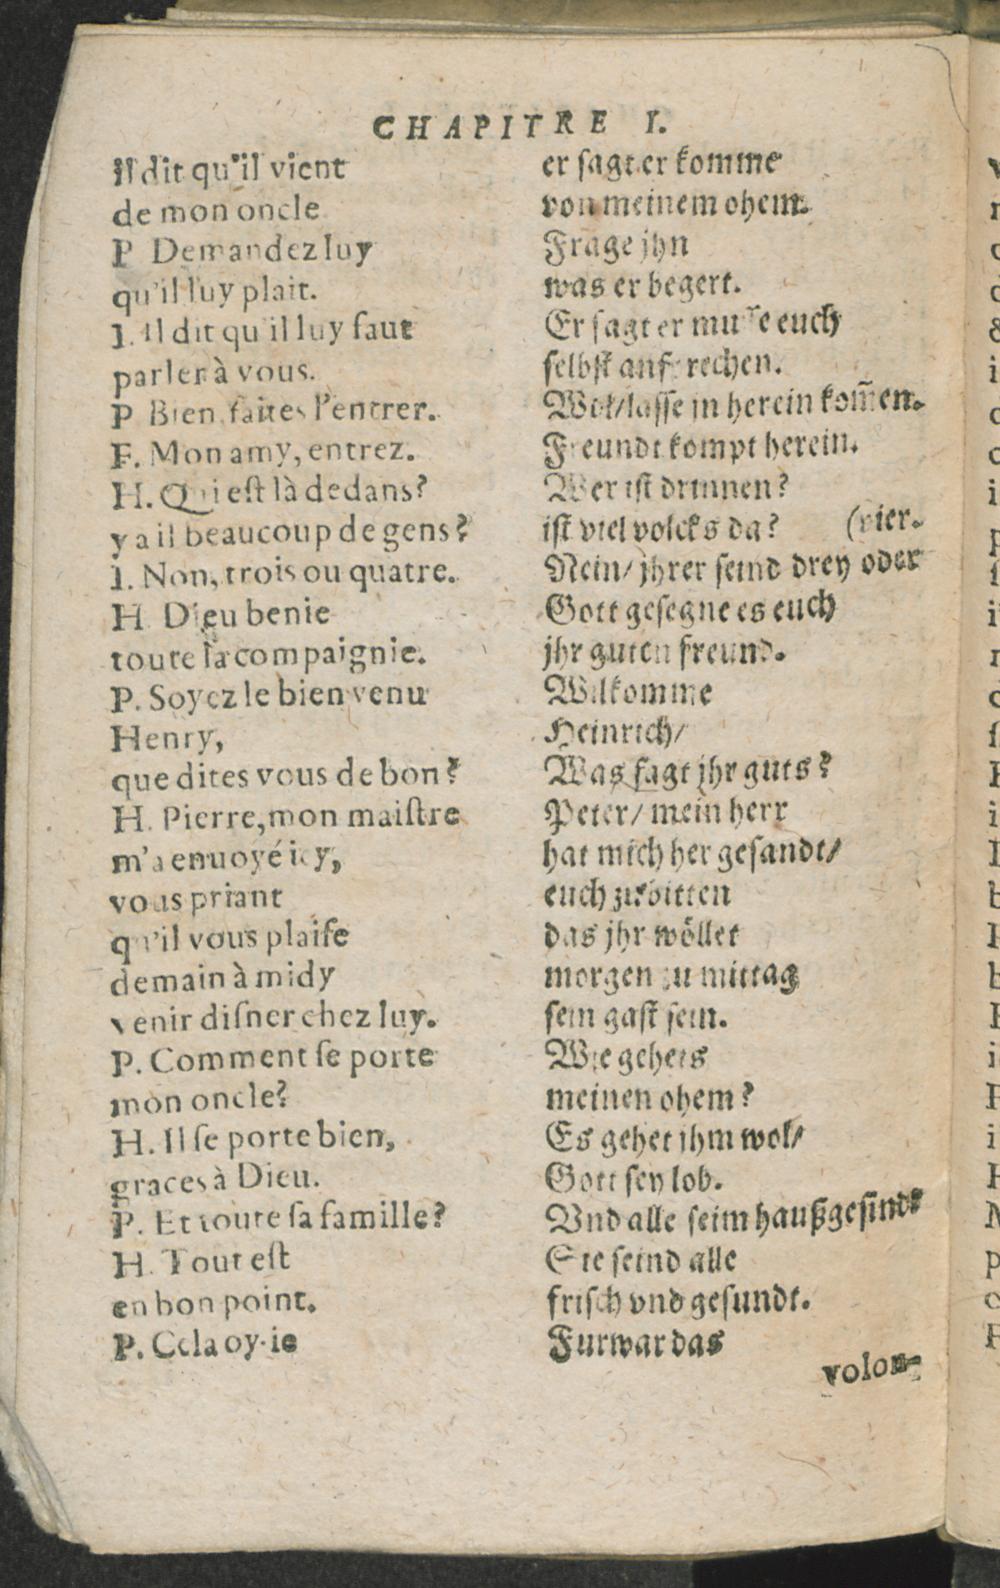 CHAPITRE I.
il dit qu'il vient
de mon oncle
P Demandez luy
qu'il luy plait.
I. Il dit qu'il luy faut
parler à vous.
P Bien, faites l'entrer.
F. Mon amy, entrez.
H. Qui est là dedans?
y a il beaucoup de gens?
I. Non, trois ou quatre.
H Dieu benie
toute la compaignie.
P. Soyez le bien venu
Henry,
que dites vous de bon?
H. Pierre, mon maiſtre
m'a enuoyé icy,
vous priant
qu'il vous plaiſe
demain à midy
venir diſner chez luy.
P. Comment ſe porte
mon oncle?
H. Il ſe porte bien,
graces à Dieu.
P. Et toute ſa famille?
H. Tout eſt
en bon point.
P. Cela oy-ie
er ſagt er komme
von meinem ohem.
Frage jhn
was er begert.
Er ſagt er muſſe euch
ſelbſt anſprechen.
Wol/laſſe jn herein kom̃en.
Freundt kompt herein.
Wer iſt drinnen?
iſt viel volcks da? (vier.
Nein/ jhrer ſeind drey oder
Gott geſegne es euch
jhr guten freund.
Wilkomme
Heinrich/
Was ſagt jhr guts?
Peter/ mein herr
hat mich her geſandt/
euch zu bitten
das jhr wöllet
morgen zu mittag
ſein gaſt ſein.
Wie gehets
meinen ohem?
Es gehet jhm wol/
Gott ſey lob.
Vnd alle ſeim haußgeſind?
Sie ſeind alle
friſch vnd geſundt.
Furwar das
volon-